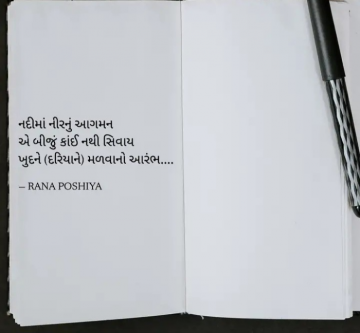 નદીમાં નીરનું આગમન
એ બીજું કાંઈ નથી સિવાય
ખુદને (દરિયાને) મળવાનો આરંભ....
– RANA POSHIYA